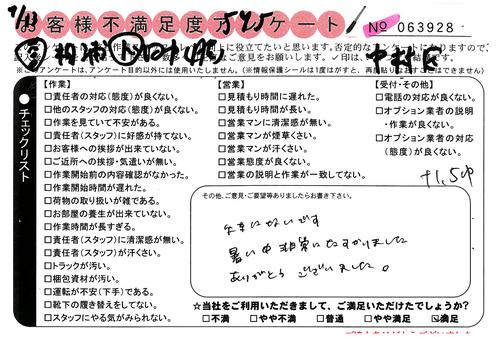 お客様不満足度アンケート
№ 063928
中村区
チェックリスト
【作業】
□責任者の対応(態度)が良くない。
□他のスタッフの対応(態度)が良くない。
□作業を見ていて不安がある。
□責任者(スタッフ)に好感が持てない。
□お客様への挨拶が出来ていない。
□ご近所への挨拶・気遣いが無い。
□作業開始前の内容確認がなかった。
□作業開始時間が遅れた。
□荷物の取り扱いが雑である。
□お部屋の養生が出来ていない。
□作業時間が長すぎる。
□責任者(スタッフ)に清潔感が無い。
□責任者(スタッフ)が汗くさい。
□トラックが汚い。
□梱包資材が汚い。
□運転が不安(下手)である。
□靴下の履き替えをしてない。
□スタッフにやる気がみられない。
【営業】
□見積もり時間に遅れた。
□見積もり時間が長い。
□営業マンに清潔感が無い。
□営業マンが煙草くさい。
□営業マンが汗くさい。
□営業態度が良くない。
□営業の説明と作業が一致してない。
【受付・その他】
□電話の対応が良くない。
□オプション業者の説明
・作業が良くない。
□オプション業者の対応
(態度)が良くない。
その他、ご意見・ご要望等ありましたらお書き下さい。
暑い中非常にたすかりました
ありがとうございました。
☆当社をご利用いただきまして、ご満足いただけたでしょうか?
□不満 □やや不満 □普通 □やや満足 ☑満足